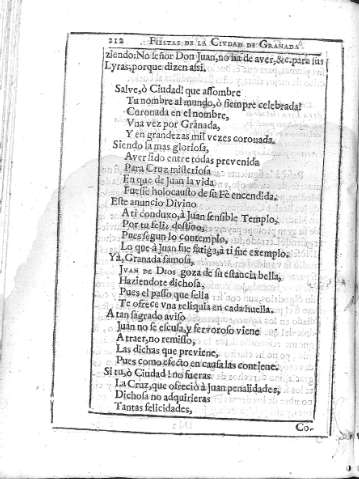 212 FIESTAS DE LA CIUDAD DE GRANADA.
ziendo: No señor Don Juan, no ha de aver, &c. para sus
Lyras, porque dizen assi.
Salve, ò Ciudad! que assombre
Tu nombre al mundo, ò siempre celebrada!
Coronada en el nombre,
Vna vez por Granada,
Y en grandezas mil vezes coronada.
Siendo la mas gloriosa,
Aver sido entre todas prevenida
Para Cruz misteriosa
En que de Juan la vida
Fuesse holocausto de su Fè encendida.
Este anuncio Divino
A ti conduxo, à Juan sensible Templo,
Por tu feliz destino,
Pues segun lo contemplo,
Lo que à Juan fue fatiga, à ti fue exemplo.
Yà, Granada famosa,
JVAN DE DIOS goza de su estancia bella,
Haziendote dichosa,
Pues el passo que sella
Te ofrece vna reliquia en cada huella.
A tan sagrado aviso
Juan no se escusa, y fervoroso viene
A traer, no remisso,
Las dichas que previene,
Pues como efecto en causa las contiene.
Si tu, ò Ciudad! no fueras
La Cruz, que ofreciò à Juan penalidades,
Dichosa no adquirieras
Tantas felicidades,
Co-